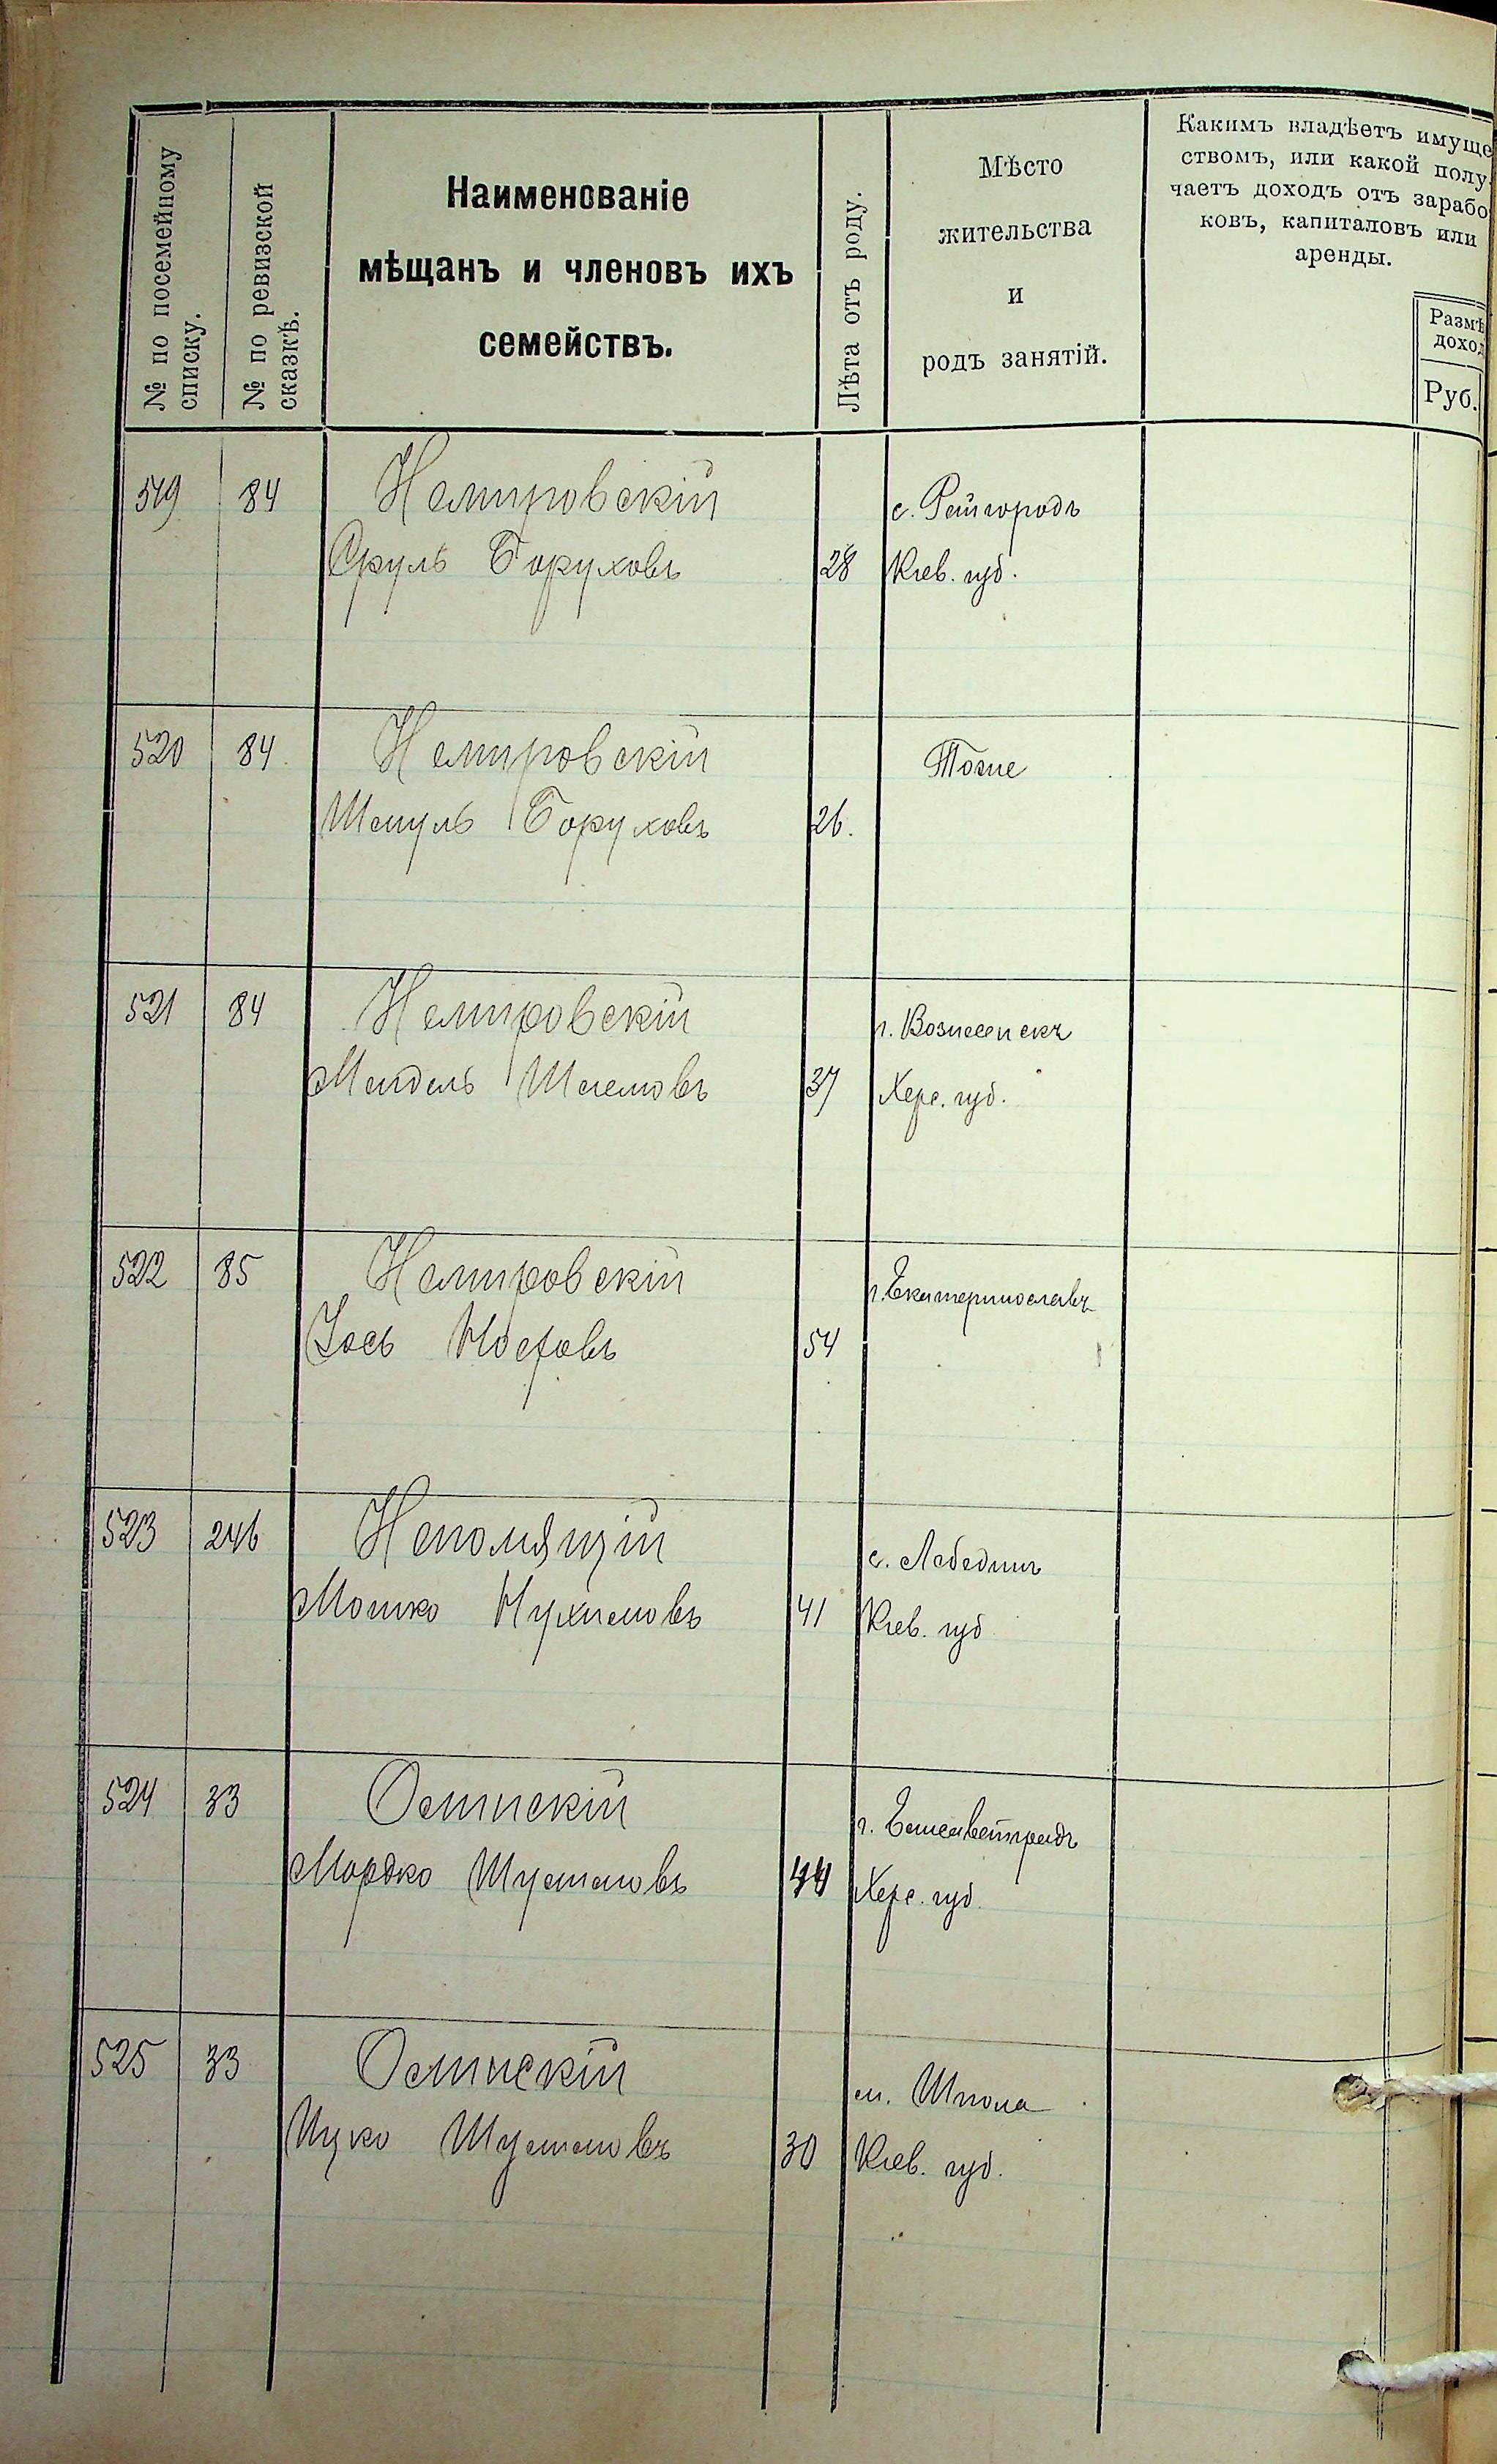 № по посемейному списку.
№ по ревизской сказкѣ.
Наименованіе
мѣщанъ и членовъ ихъ
семействъ.
Лѣта отъ роду.
Мѣсто
жительства
и
родъ занятій.
Какимъ владѣетъ имуще
ствомъ, или какой полу-
чаетъ доходъ отъ зарабо
ковъ, капиталовъ или
аренды.
Размѣ
доход
Руб.
519 84 Немировскій с. Райгородъ
Сруль Боруховъ 28 Кіев. губ.
520 84. Немировскій Тоже
Шмуль Боруховъ 26.
521 84 Немировскій г. Вознесенскъ
Мендель Шлемовъ 37 Хере. губ.
522 85 Немировскій г. Екатеринославъ
Іось Іосфовъ 54
523 246 Непомящій с. Лебединъ
Мошко Нухимовъ 41 Кіев. губ
524 33 Осинскій г. Елисаветградъ
Мордко Шулимовъ 44 Херс. губ.
525 33 Осинскій м. Шпола
Ицко 30 Кіев. губ.